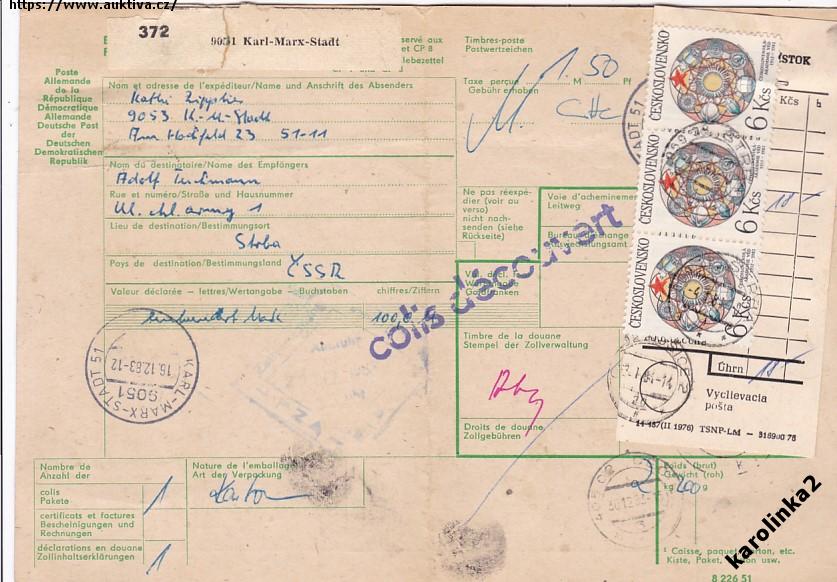 https://www.auktiva.cz/
372
9051 Karl-Marx-Stadt
Poste
Allemande
de la
République
Démocratique
Allemande
Deutsche Post
der
Deutschen
Demokratischen
Republik
Nom et adresse de l'expéditeur/Name und Anschrift des Absenders
9053 K.-M.-Stadt
23 51-11
Nom du destinataire/Name des Empfängers
Adolf
Rue et numéro/Straße und Hausnummer
Ul. čl. army 1
Lieu de destination/Bestimmungsort
Štrba
Pays de destination/Bestimmungsland ČSSR
Valeur déclarée - lettres/Wertangabe - Buchstaben chiffres/Ziffern
einhundert Mark 100,0 M
Timbres-poste
Postwertzeichen
Taxe perçue M Pf
Gebühr erhoben
1 50
Ne pas réexpé-
dier (voir au
verso)
nicht nach-
senden (siehe
Rückseite)
Voie d'acheminement
Leitweg
Bureau d'échange
Auswechslungsamt
Goldfranken
colis découvert
Timbre de la douane
Stempel der Zollverwaltung
Droits de douane
Zollgebühren
ČESKOSLOVENSKO
6 Kčs
ČESKOSLOVENSKO
6 Kčs
ČESKOSLOVENSKO
6 Kčs
ÍSTOK
Kčs h
18 -
Úhrn 18 -
Vyclievacia
pošta
14-457(II 1976) TSNP-LM - 3169ud 76
KARL-MARX-STADT 51
16.12.83-12
9051
Nombre de
Anzahl der
colis
Pakete 1
certificats et factures
Bescheinigungen und
Rechnungen
déclarations en douane
Zollinhaltserklärungen 1
Nature de l'emballage
Art der Verpackung
Karton
Poids (brut)
Gewicht (roh)
kg
2 200
¹ Caisse, paquet, carton, etc.
Kiste, Paket, Karton usw.
8 226 51
karolinka2